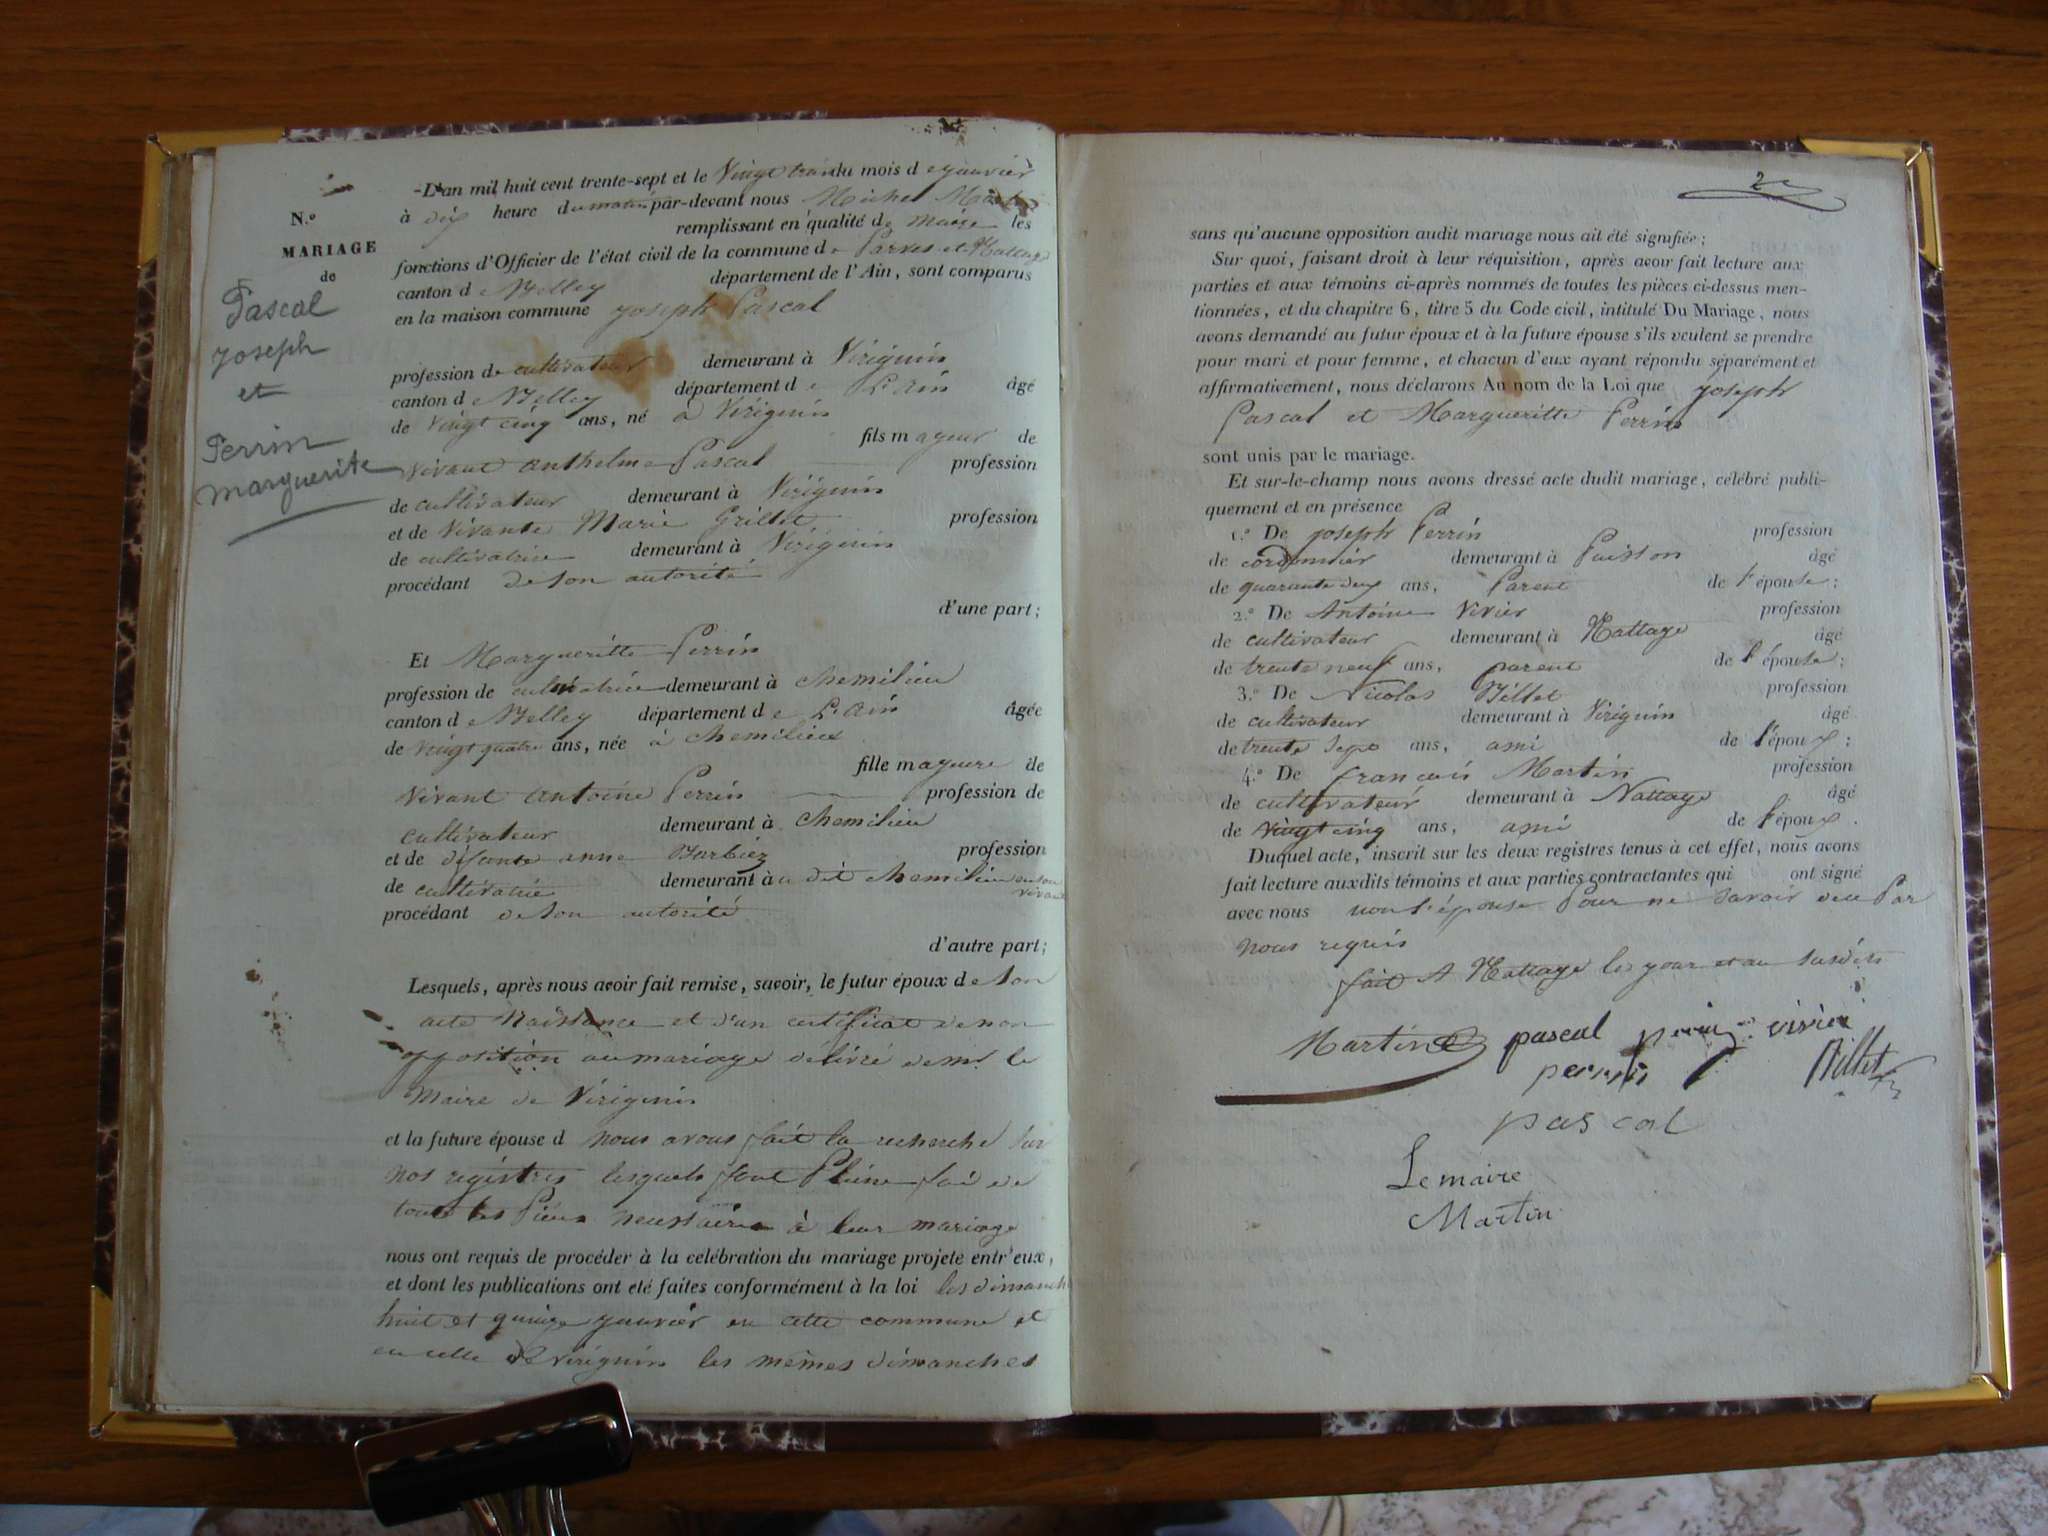 N.º
MARIAGE
de
Pascal
Joseph
et
Perrin
marguerite
L'an mil huit cent trente-sept et le Vingt trois du mois d e janvier
à dix heure du matin par-devant nous Michel Martin
remplissant en qualité de maire les
fonctions d'Officier de l'état civil de la commune de Parves et Nattage
canton de Belley département de l'Ain, sont comparus
en la maison commune joseph Pascal
profession de cultivateur demeurant à Virignin
canton de Belley département de L'ain âgé
de vingt cinq ans, né à Virignin
fils mageur de
vivant anthelme Pascal profession
de cultivateur demeurant à Virignin
et de vivante Marie Grillet profession
de cultivatrice demeurant à Virignin
procédant de son autorité
d'une part;
Et Margueritte Perrin
profession de cultivatrice demeurant à chemilieu
canton de Belley département de L'ain âgée
de vingt quatre ans, née à chemilieu
fille mageure de
vivant antoine Perrin profession de
cultivateur demeurant à chemilieu
et de défunte anne Barbier profession
de cultivatrice demeurant au dit chemilieu en son vivant
procédant de son autorité
d'autre part;
Lesquels, après nous avoir fait remise, savoir, le futur époux de son
acte Naissance et d'un certificat de non
opposition au mariage délivré de mr le
Maire de Virignin
et la future épouse d nous avons fait la recherche sur
nos registres lesquels font Pleine foi de
toutes les Pièces necessaires à leur mariage
nous ont requis de procéder à la celébration du mariage projete entr'eux,
et dont les publications ont eté faites conformément à la loi les dimanch
huit et quinze janvier en cette commune et
en celle de virignin les mêmes dimanches
2
sans qu'aucune opposition audit mariage nous ait été signifiée;
Sur quoi, faisant droit à leur réquisition, après avoir fait lecture aux
parties et aux témoins ci-après nommés de toutes les pièces ci-dessus men-
tionnées, et du chapitre 6, titre 5 du Code civil, intitulé Du Mariage, nous
avons demandé au futur époux et à la future épouse s'ils veulent se prendre
pour mari et pour femme, et chacun d'eux ayant répondu séparément et
affirmativement, nous déclarons Au nom de la Loi que joseph
Pascal et Margueritte Perrin
sont unis par le mariage.
Et sur-le-champ nous avons dressé acte dudit mariage, célébré publi-
quement et en présence
1.º De joseph Perrin profession
de cordonnier demeurant à Puisson âgé
de quarante deux ans, Parent de l'épouse;
2.º De Antoine Vivier profession
de cultivateur demeurant à Nattage âgé
de trente neuf ans, parent de l'épouse;
3.º De Nicolas Billet profession
de cultivateur demeurant à Virignin âgé
de trente sept ans, ami de l'époux;
4.º De francois Martin profession
de cultivateur demeurant à Nattage âgé
de vingt cinq ans, ami de l'époux.
Duquel acte, inscrit sur les deux registres tenus à cet effet, nous avons
fait lecture auxdits témoins et aux parties contractantes qui ont signé
avec nous non l'épouse Pour ne savoir de ce Par
nous requis
fait A Nattage les jour et an susdits
Martin pascal perrin vivier
perrin Billet
pascal
Le maire
Martin